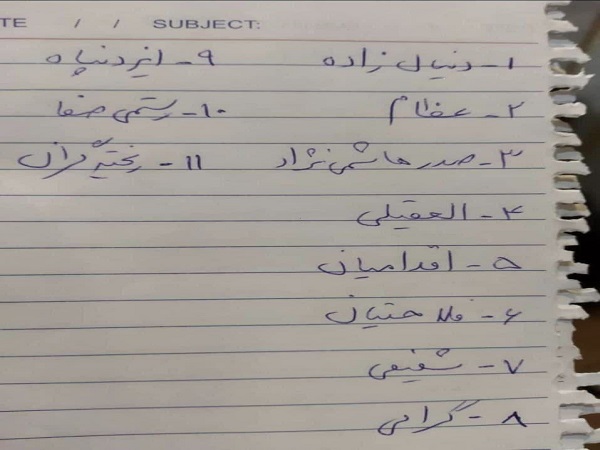 DATE / / SUBJECT:
۱- دنیال زاده
۲- عظام
۳- صدرهاشمی نژاد
۴- العقیلی
۵- اقدامیان
۶- فلاحتیان
۷- شفیعی
۸- گرامی
۹- ایزدنپاه
۱۰- رستمی صفا
۱۱- ریخته گران